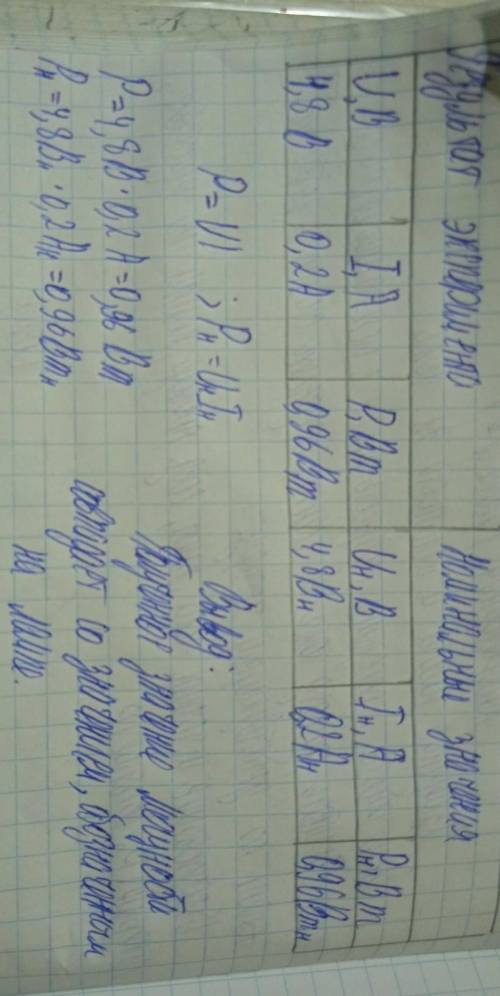 Результат экспириментно Номинальны значения
U, В I, А P, Вт Uн, В Iн, А Pн, Вт
4,8 В 0,2А 0,96Вт 4,8Вн 0,2Ан 0,96Втн
P=UI ; Pн=UнIн
P=4,8В·0,2А=0,96 Вт
Pн=4,8Вн·0,2Ан=0,96Втн
Вывод:
значение мощности
совпадает со значением, обозначенным
на лампе.